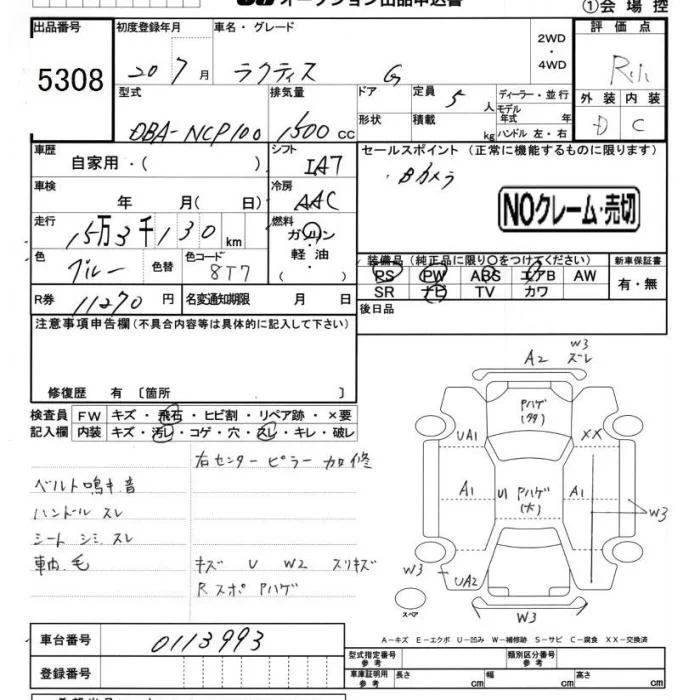 オークション出品申込書
①会場控
出品番号
5308
初度登録年月
20 7月
車名・グレード
ラクティス G
2WD
・
4WD
評価点
R
外装 内装
D C
型式
DBA-NCP100
排気量
1500 CC
ドア
形状
定員 5 人
積載 kg
ディーラー・並行
モデル年式 年
ハンドル 左・右
車歴
自家用・( )
シフト
IA7
セールスポイント (正常に機能するものに限ります)
・Bカメラ
NOクレーム・売切
車検
年 月( 日)
冷房
AAC
走行
15万3千130km
燃料
ガソリン
軽油
( ・ )
色
ブルー
色替
色コード
8T7
装備品 (純正品に限り○をつけてください)
PS PW ABS エアB AW
SR ナビ TV カワ
新車保証書
有・無
R券 11270円
名変通知期限 月 日
後日品
注意事項申告欄 (不具合内容等は具体的に記入して下さい)
修復歴 有 〔箇所 〕
検査員 FW キズ・飛石・ヒビ割・リペア跡・×要
記入欄 内装 キズ・汚レ・コゲ・穴・スレ・キレ・破レ
右センターピラー加修
ベルト鳴キ音
ハンドル スレ
シート シミ スレ
車内 毛
キズ U W2 スリキズ
Rスポ Pハゲ
A2
W3
ズレ
Pハゲ
(多)
UA1
XX
A1
U1
Pハゲ
(大)
A1
W3
W3
UA2
W3
スペア
A-キズ E-エクボ U-凹み W-補修跡 S-サビ C-腐食 XX-交換済
車台番号 0113993
登録番号
型式指定番号 参考
類別区分番号 参考
車庫証明用 参考
長さ cm
幅 cm
高さ cm